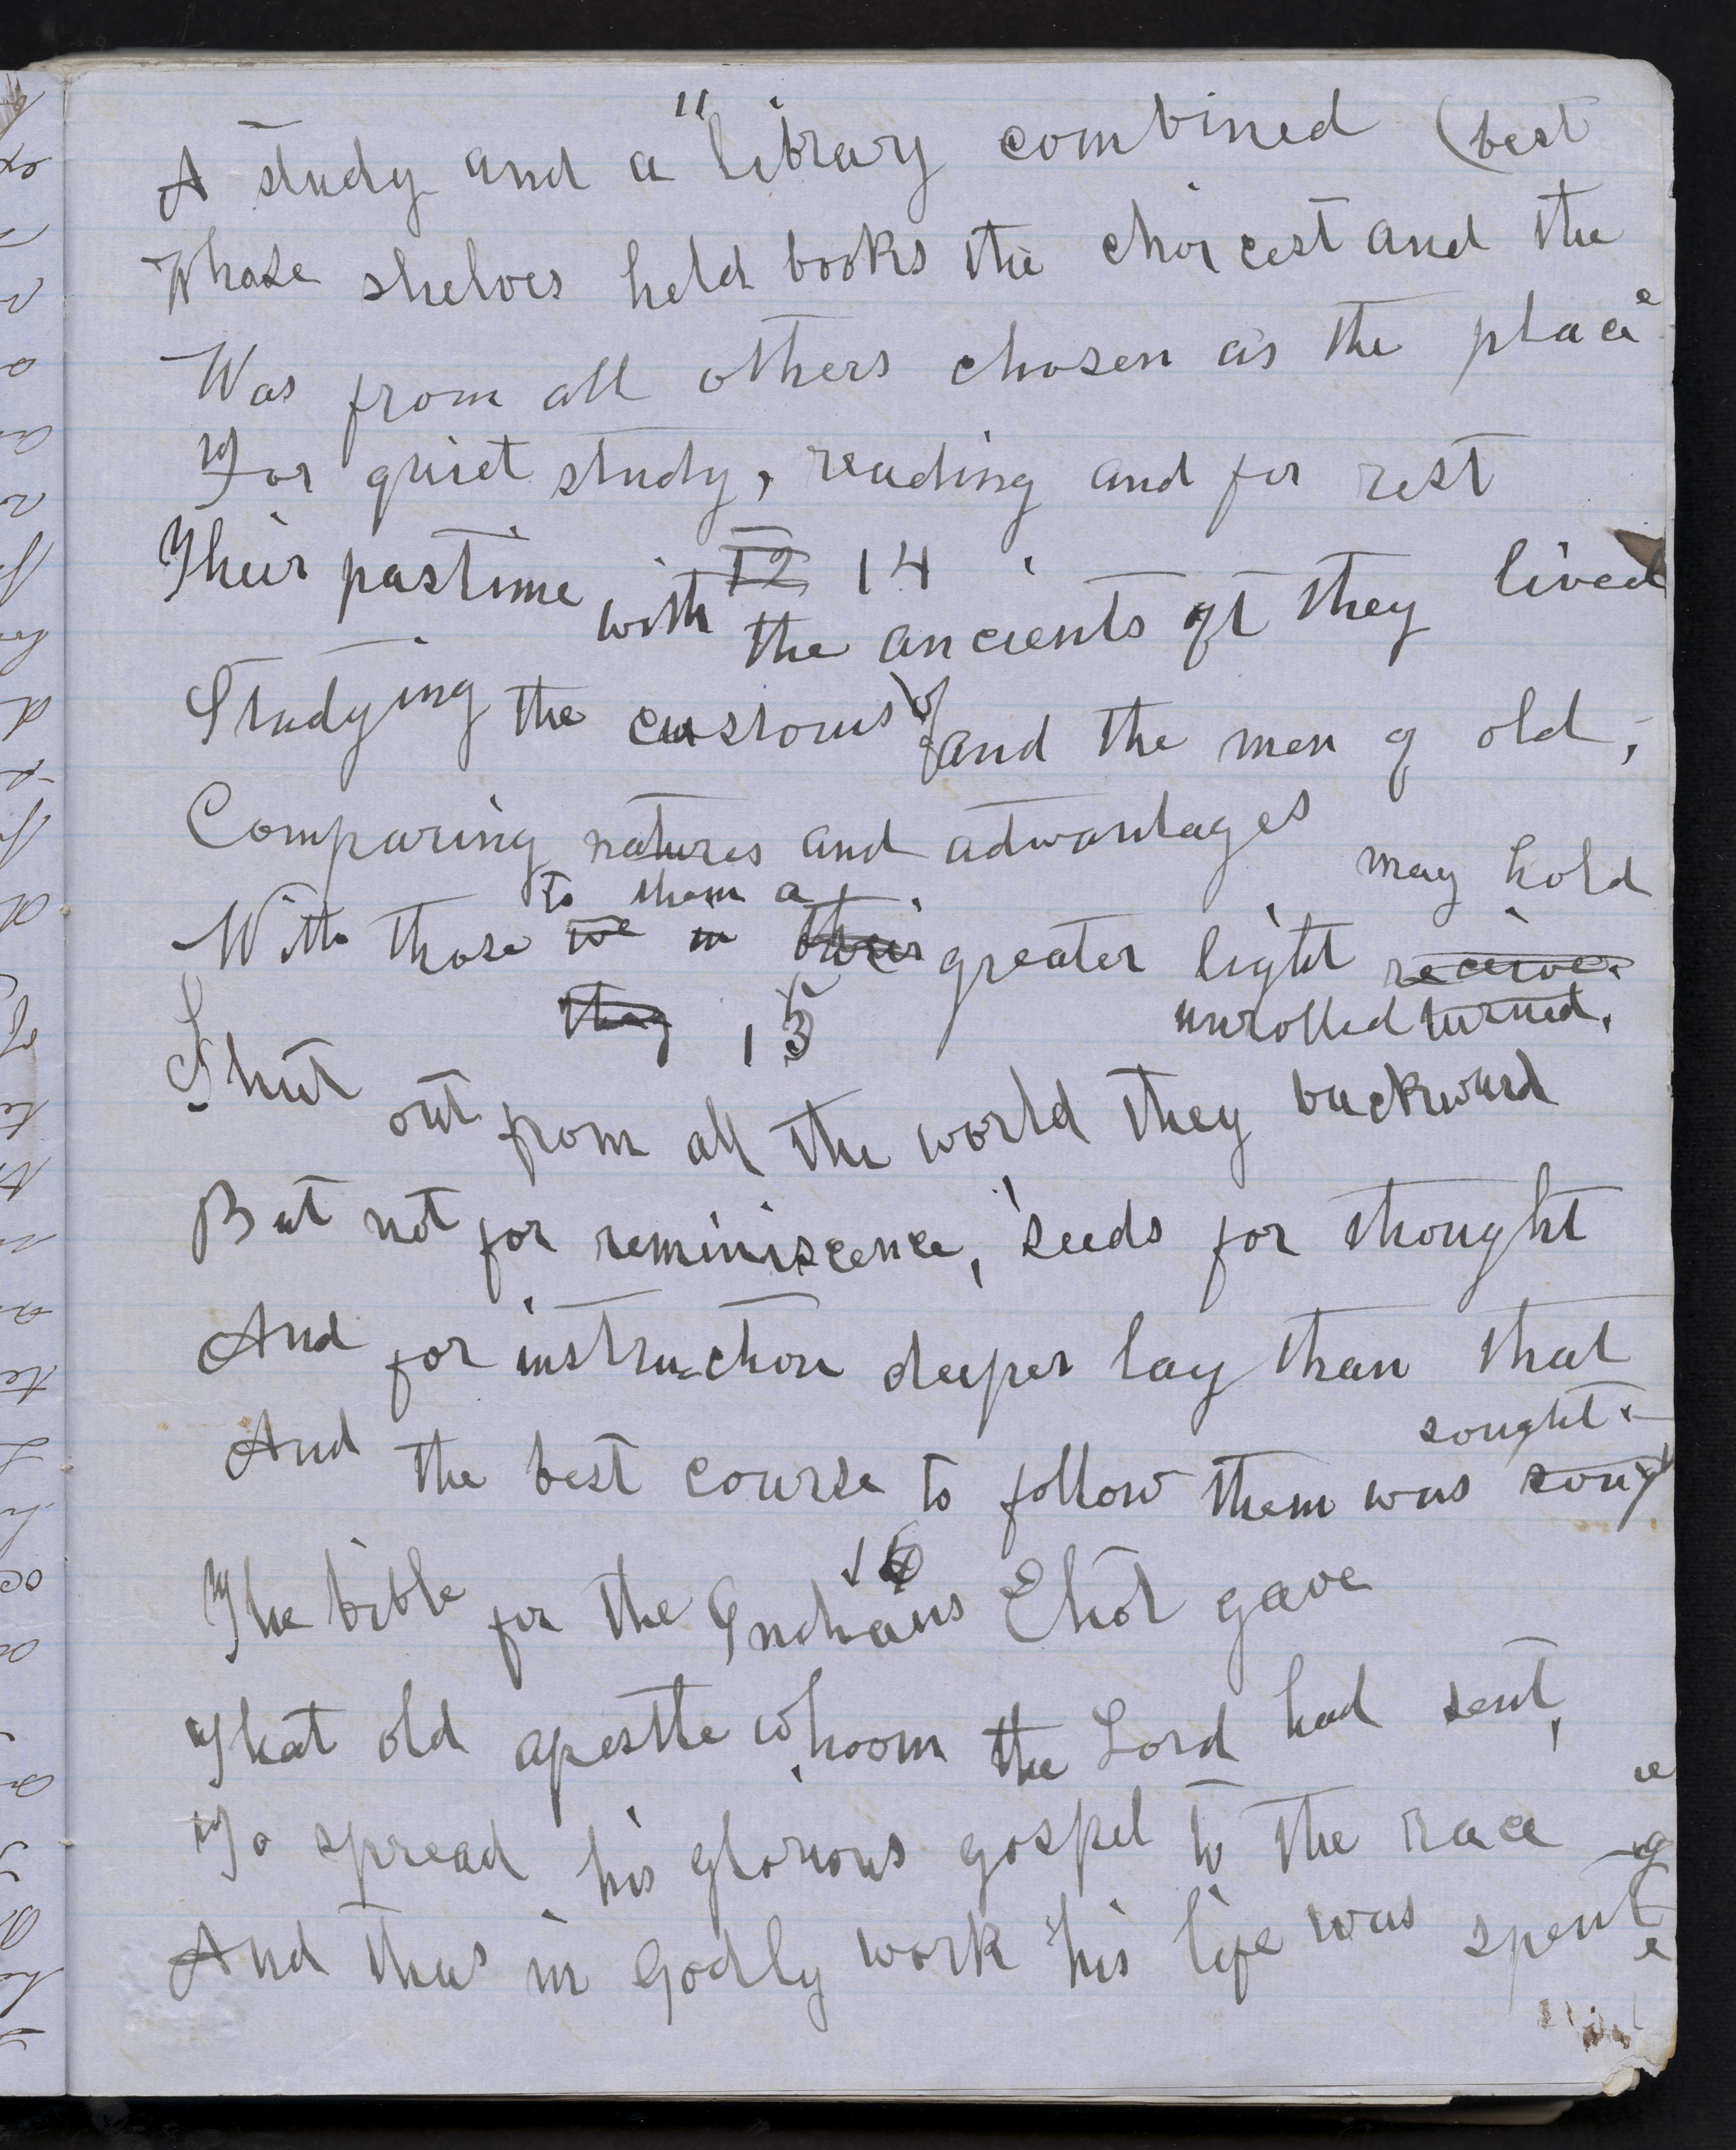 11
A study and a library combined (best
Whose shelves held books the choicest and the
Was from all others chosen as the place
For quiet study, reading and for rest
12 14
Their pastime with the ancients oft they lived
Studying the customs of and the men of old,
Comparing natures and advantages
may hold
to them a
With those we in their greater light receive.
they 15
unrolled turned.
Shut out from all the world they backward
But not for reminiscence, seeds for thought
And for instruction deeper lay than that
sought.
And the best course to follow them was sought
16
The bible for the Indians Eliot gave
That old apostle whoom the Lord had sent,
To spread his glorious gospel to the race
And thus in Godly work his life was spent